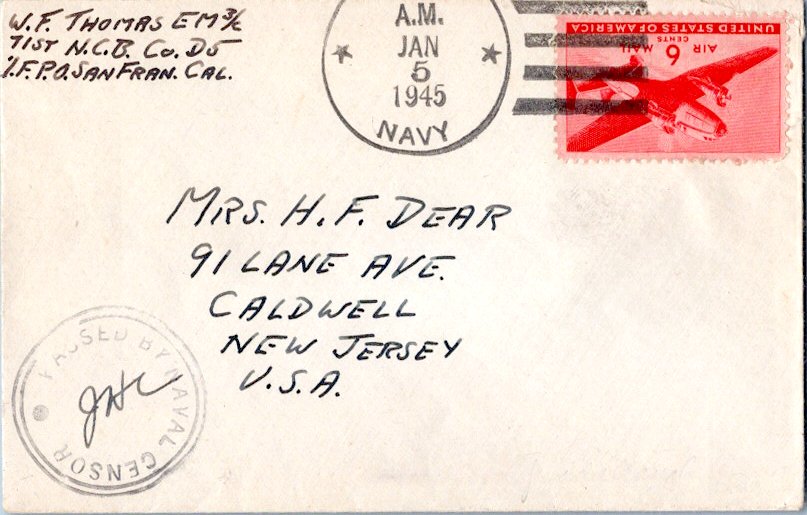 W. F. THOMAS EM 3/c
71ST N.C.B. CO. D5
F.P.O. SAN FRAN. CAL.
A.M.
JAN
5
1945
NAVY
UNITED STATES OF AMERICA
6 CENTS AIR MAIL
MRS. H. F. DEAR
91 LANE AVE.
CALDWELL
NEW JERSEY
U.S.A.
PASSED BY NAVAL CENSOR